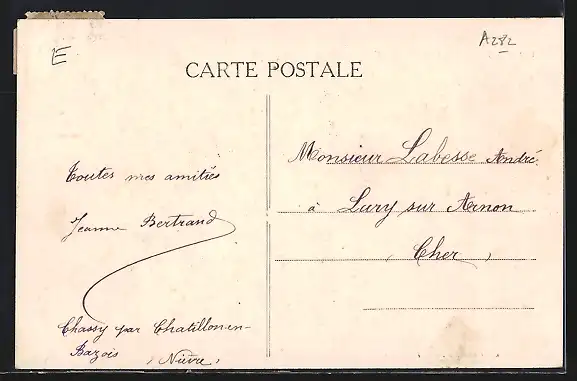 E
A282
CARTE POSTALE
Toutes mes amitiés
Jeanne Bertrand
Chassy par Chatillon-en-
Bazois (Nièvre)
Monsieur Labesse André
à Lury sur Arnon
(Cher)